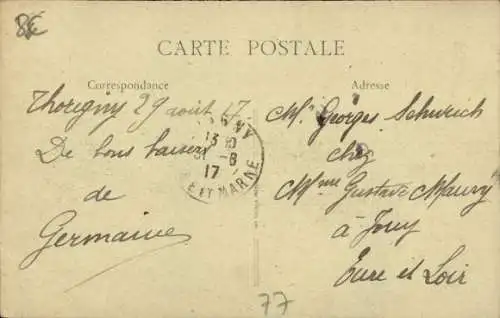 8€
CARTE POSTALE
Correspondance
Adresse
Thorigny 29 août 17
De bons baisers
de
Germaine
NY
13 10
31 - 8
17
ET MARNE
Mr Georges Schurich
chez
Mme Gustave Maury
à Jouy
Eure et Loir
77